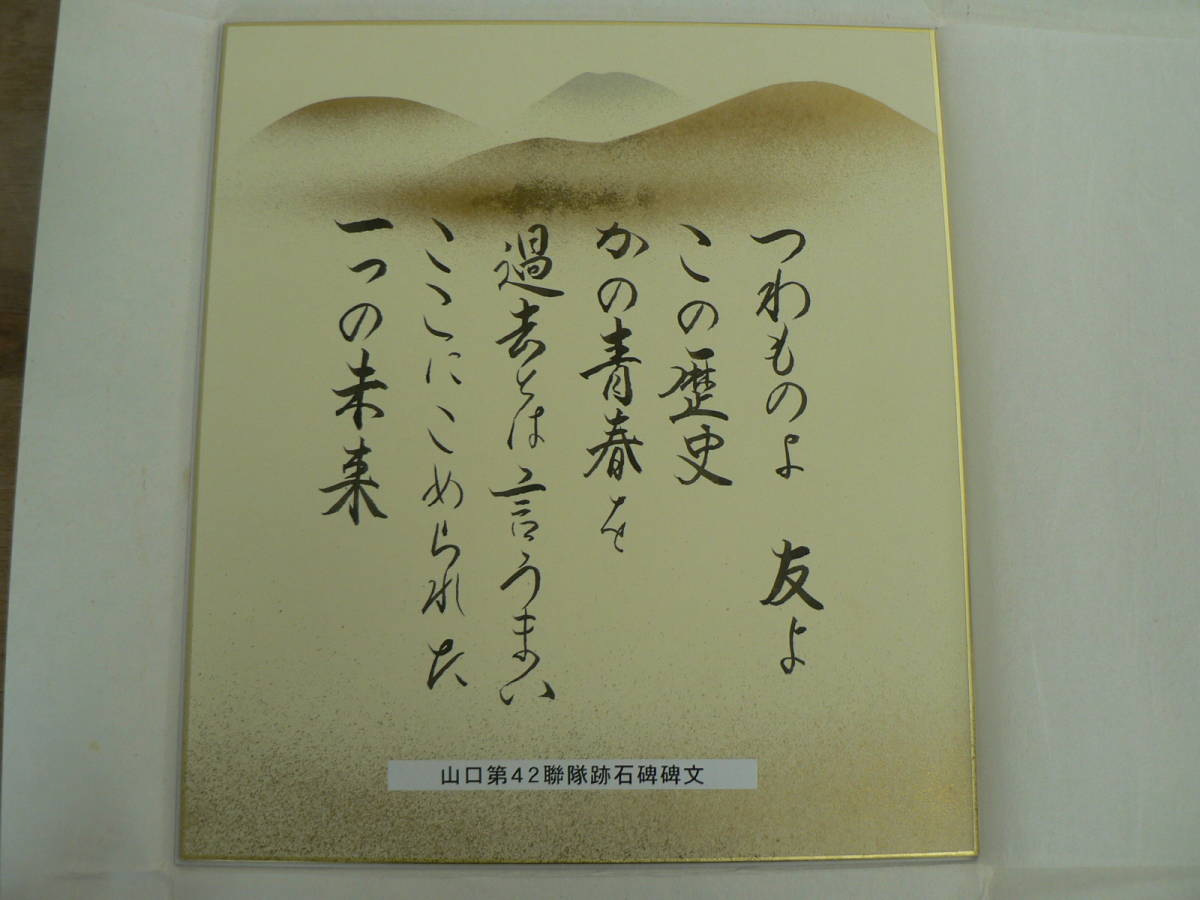 つわものよ　友よ
この歴史
かの青春を
過去とは言うまい
ここにこめられた
一つの未来
山口第42聯隊跡石碑碑文